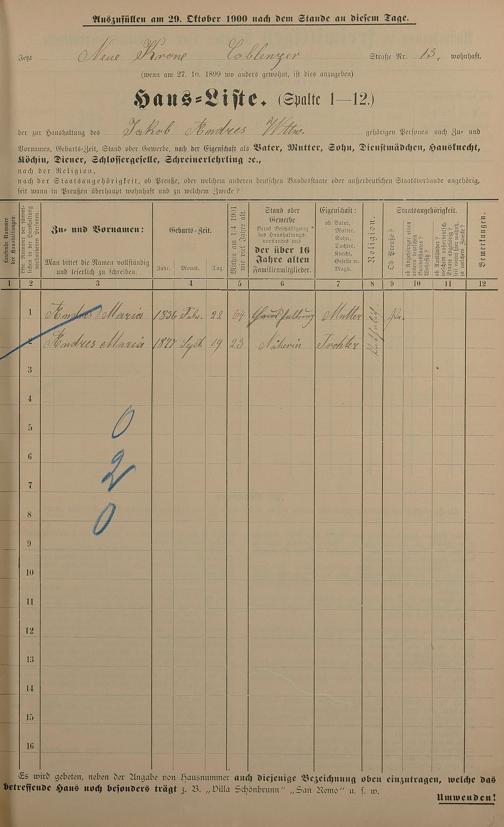 Auszufüllen am 29. Oktober 1900 nach dem Stande an diesem Tage.
Jetzt Neue Krone Coblenzer Straße Nr. 13, wohnhaft.
(wenn am 27. 10. 1899 wo anders gewohnt, ist dies anzugeben)
Haus-Liste. (Spalte 1—12.)
der zur Haushaltung des Jakob Andres Wttwe. gehörigen Personen nach Zu- und
Vornamen, Geburts-Zeit, Stand oder Gewerbe, nach der Eigenschaft als Vater, Mutter, Sohn, Dienstmädchen, Hausknecht,
Köchin, Diener, Schlossergeselle, Schreinerlehrling ꝛc.,
nach der Religion,
nach der Staatsangehörigkeit, ob Preuße, oder welchem anderen deutschen Bundesstaate oder außerdeutschen Staatsverbande angehörig,
seit wann in Preußen überhaupt wohnhaft und zu welchem Zwecke?
Zu- und Vornamen:
Man bittet die Namen vollständig
und leserlich zu schreiben.
Geburts-Zeit.
Jahr. Monat. Tag.
Stand oder
Gewerbe
der über 16
Jahre alten
Familienmitglieder.
Eigenschaft:
ob Vater,
Mutter,
Sohn,
Tochter,
Knecht,
Geselle,
Magd.
Religion.
Staatsangehörigkeit.
Ob Preuße?
Bemerkungen.
1 2 3 4 5 6 7 8 9 10 11 12
1 Andres Maria 1836 Febr. 22 64 Haushaltung Mutter katholisch Pr.
2 Andres Maria 1877 Sept. 19 23 Näherin Tochter
3
4
0
5
6
2
7
8
0
9
10
11
12
13
14
15
16
Es wird gebeten, neben der Angabe von Hausnummer auch diejenige Bezeichnung oben einzutragen, welche das
betreffende Haus noch besonders trägt z. B. „Villa Schönbrunn“ „San Remo“ u. s. w.
Umwenden!